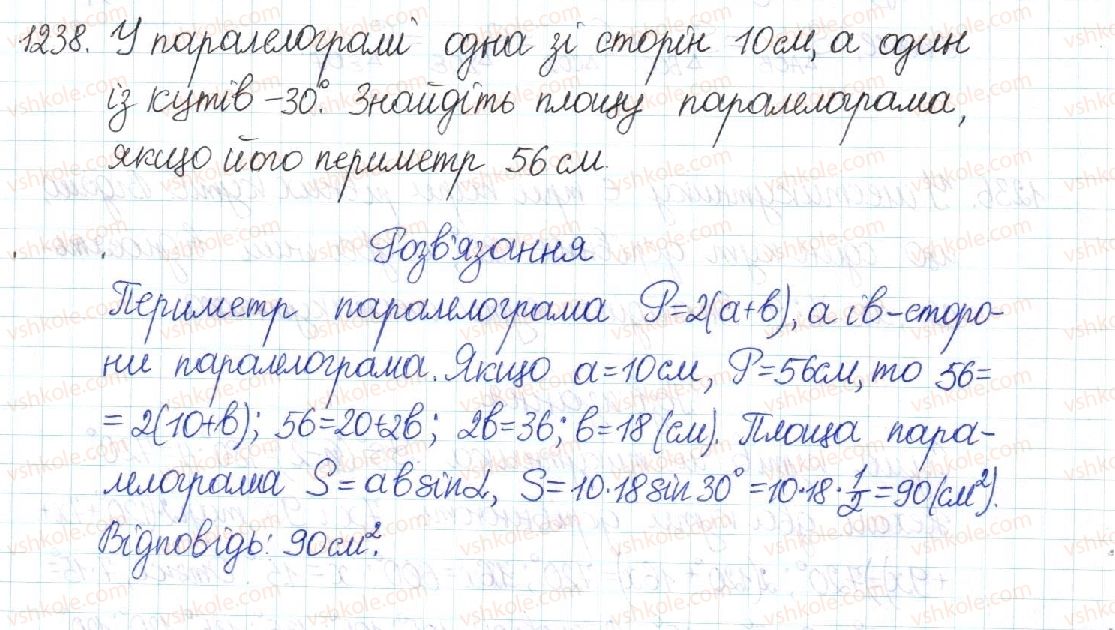 1238. У паралелограмі одна зі сторін 10 см, а один
із кутів – 30°. Знайдіть площу паралелограма,
якщо його периметр 56 см.
Розв'язання
Периметр паралелограма P=2(a+b), a і b – сторо-
ни паралелограма. Якщо a=10см, P=56см, то 56=
=2(10+b); 56=20+2b; 2b=36; b=18 (см). Площа пара-
лелограма S=absinα, S=10·18sin30°=10·18·1/2=90(см²).
Відповідь: 90см².